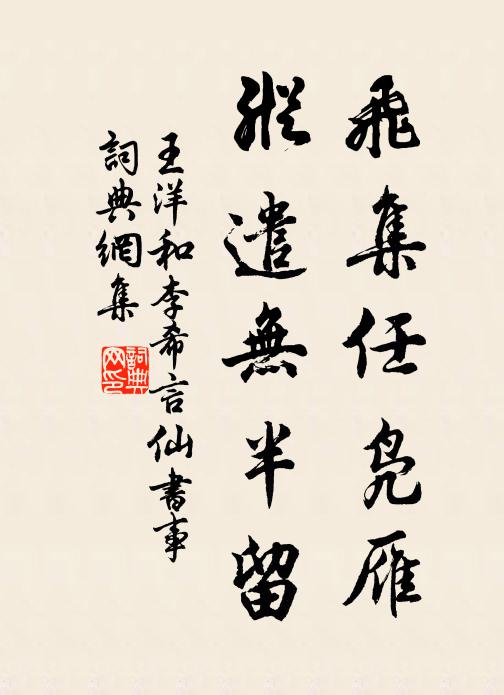 飛集任鳧雁
縱遣無半留
王洋和李希言仙書事
詞典網集
詞典
网印